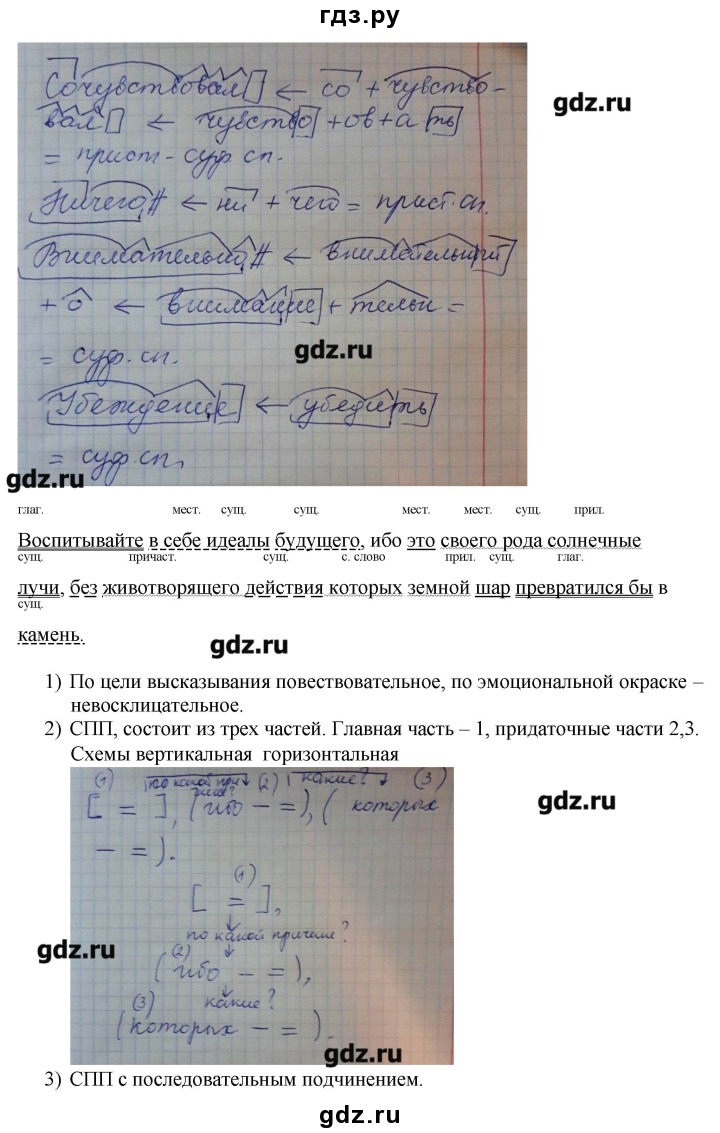 гдз.ру
Сочувствовал ← со + чувство-
gdz.ru
вал ← чувство + ов + а ть
= прист - суф. сп.
Ничего ← ни + чего = прист. сп.
Внимательно ← внимательный
+ о ← внимание + тельн =
gdz.ru
= суф. сп.
Убеждение ← убедить
= суф. сп.
gdz.ru
глаг. мест. сущ. сущ. мест. мест. сущ. прил.
Воспитывайте в себе идеалы будущего, ибо это своего рода солнечные
сущ. причаст. сущ. с. слово прил. сущ. глаг.
лучи, без животворящего действия которых земной шар превратился бы в
сущ.
камень.
gdz.ru
1) По цели высказывания повествовательное, по эмоциональной окраске –
невосклицательное.
2) СПП, состоит из трех частей. Главная часть – 1, придаточные части 2,3.
Схемы вертикальная горизонтальная
(1) по какой при- (2) какие? (3)
чине?
[ = ], (ибо – =), ( которых
gdz.ru
– = ).
(1)
[ = ],
по какой причине?
gdz.ru
(2)
(ибо – = ),
(3) какие?
(которых – = ).
gdz.ru
3) СПП с последовательным подчинением.
gdz.ru